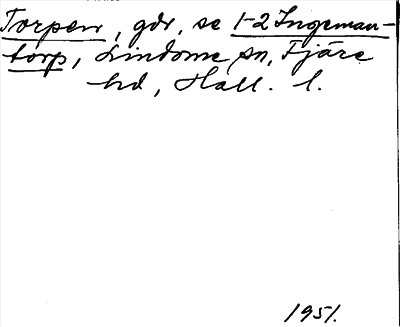 Torpen, gdr, se 1-2 Ingeman-
torp, Lindome sn, Fjäre
hd, Hall. l.
1951.